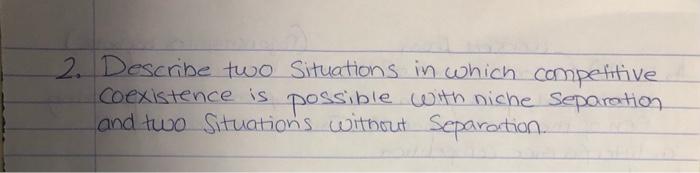 2. Describe two Situations in which competitive
coexistence is possible with niche Separation
and two Situations without Separation.